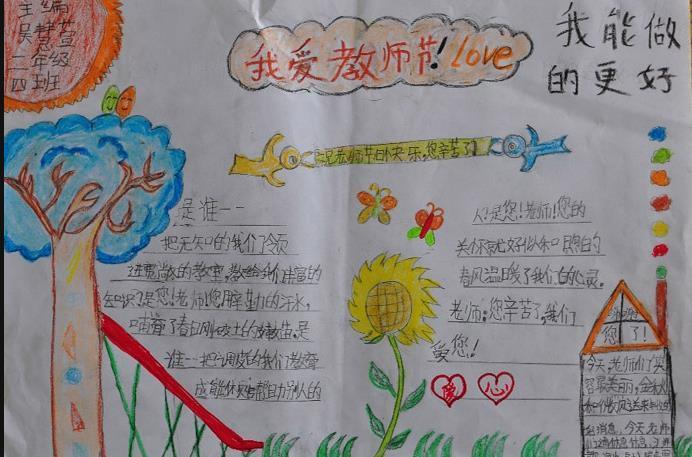 主编
吴慧萱
二年级
四班
我爱教师节!love
我能做
的更好
祝老师节日快乐,您辛苦了!
是谁——
把无知的我们领
进宽敞的教室,教给我们丰富的
知识?是您!老师!您用辛勤的汗水,
哺育了春日刚破土的嫩苗,是
谁——把调皮的我们教育
成能体贴帮助别人的
人?是您!老师!您的
关怀就好似和煦的
春风温暖了我们的心灵。
老师,您辛苦了,我们
爱您!
爱 心
您
了!
今天,老师们
容最美丽,金秋
送来
的消息,今天老师